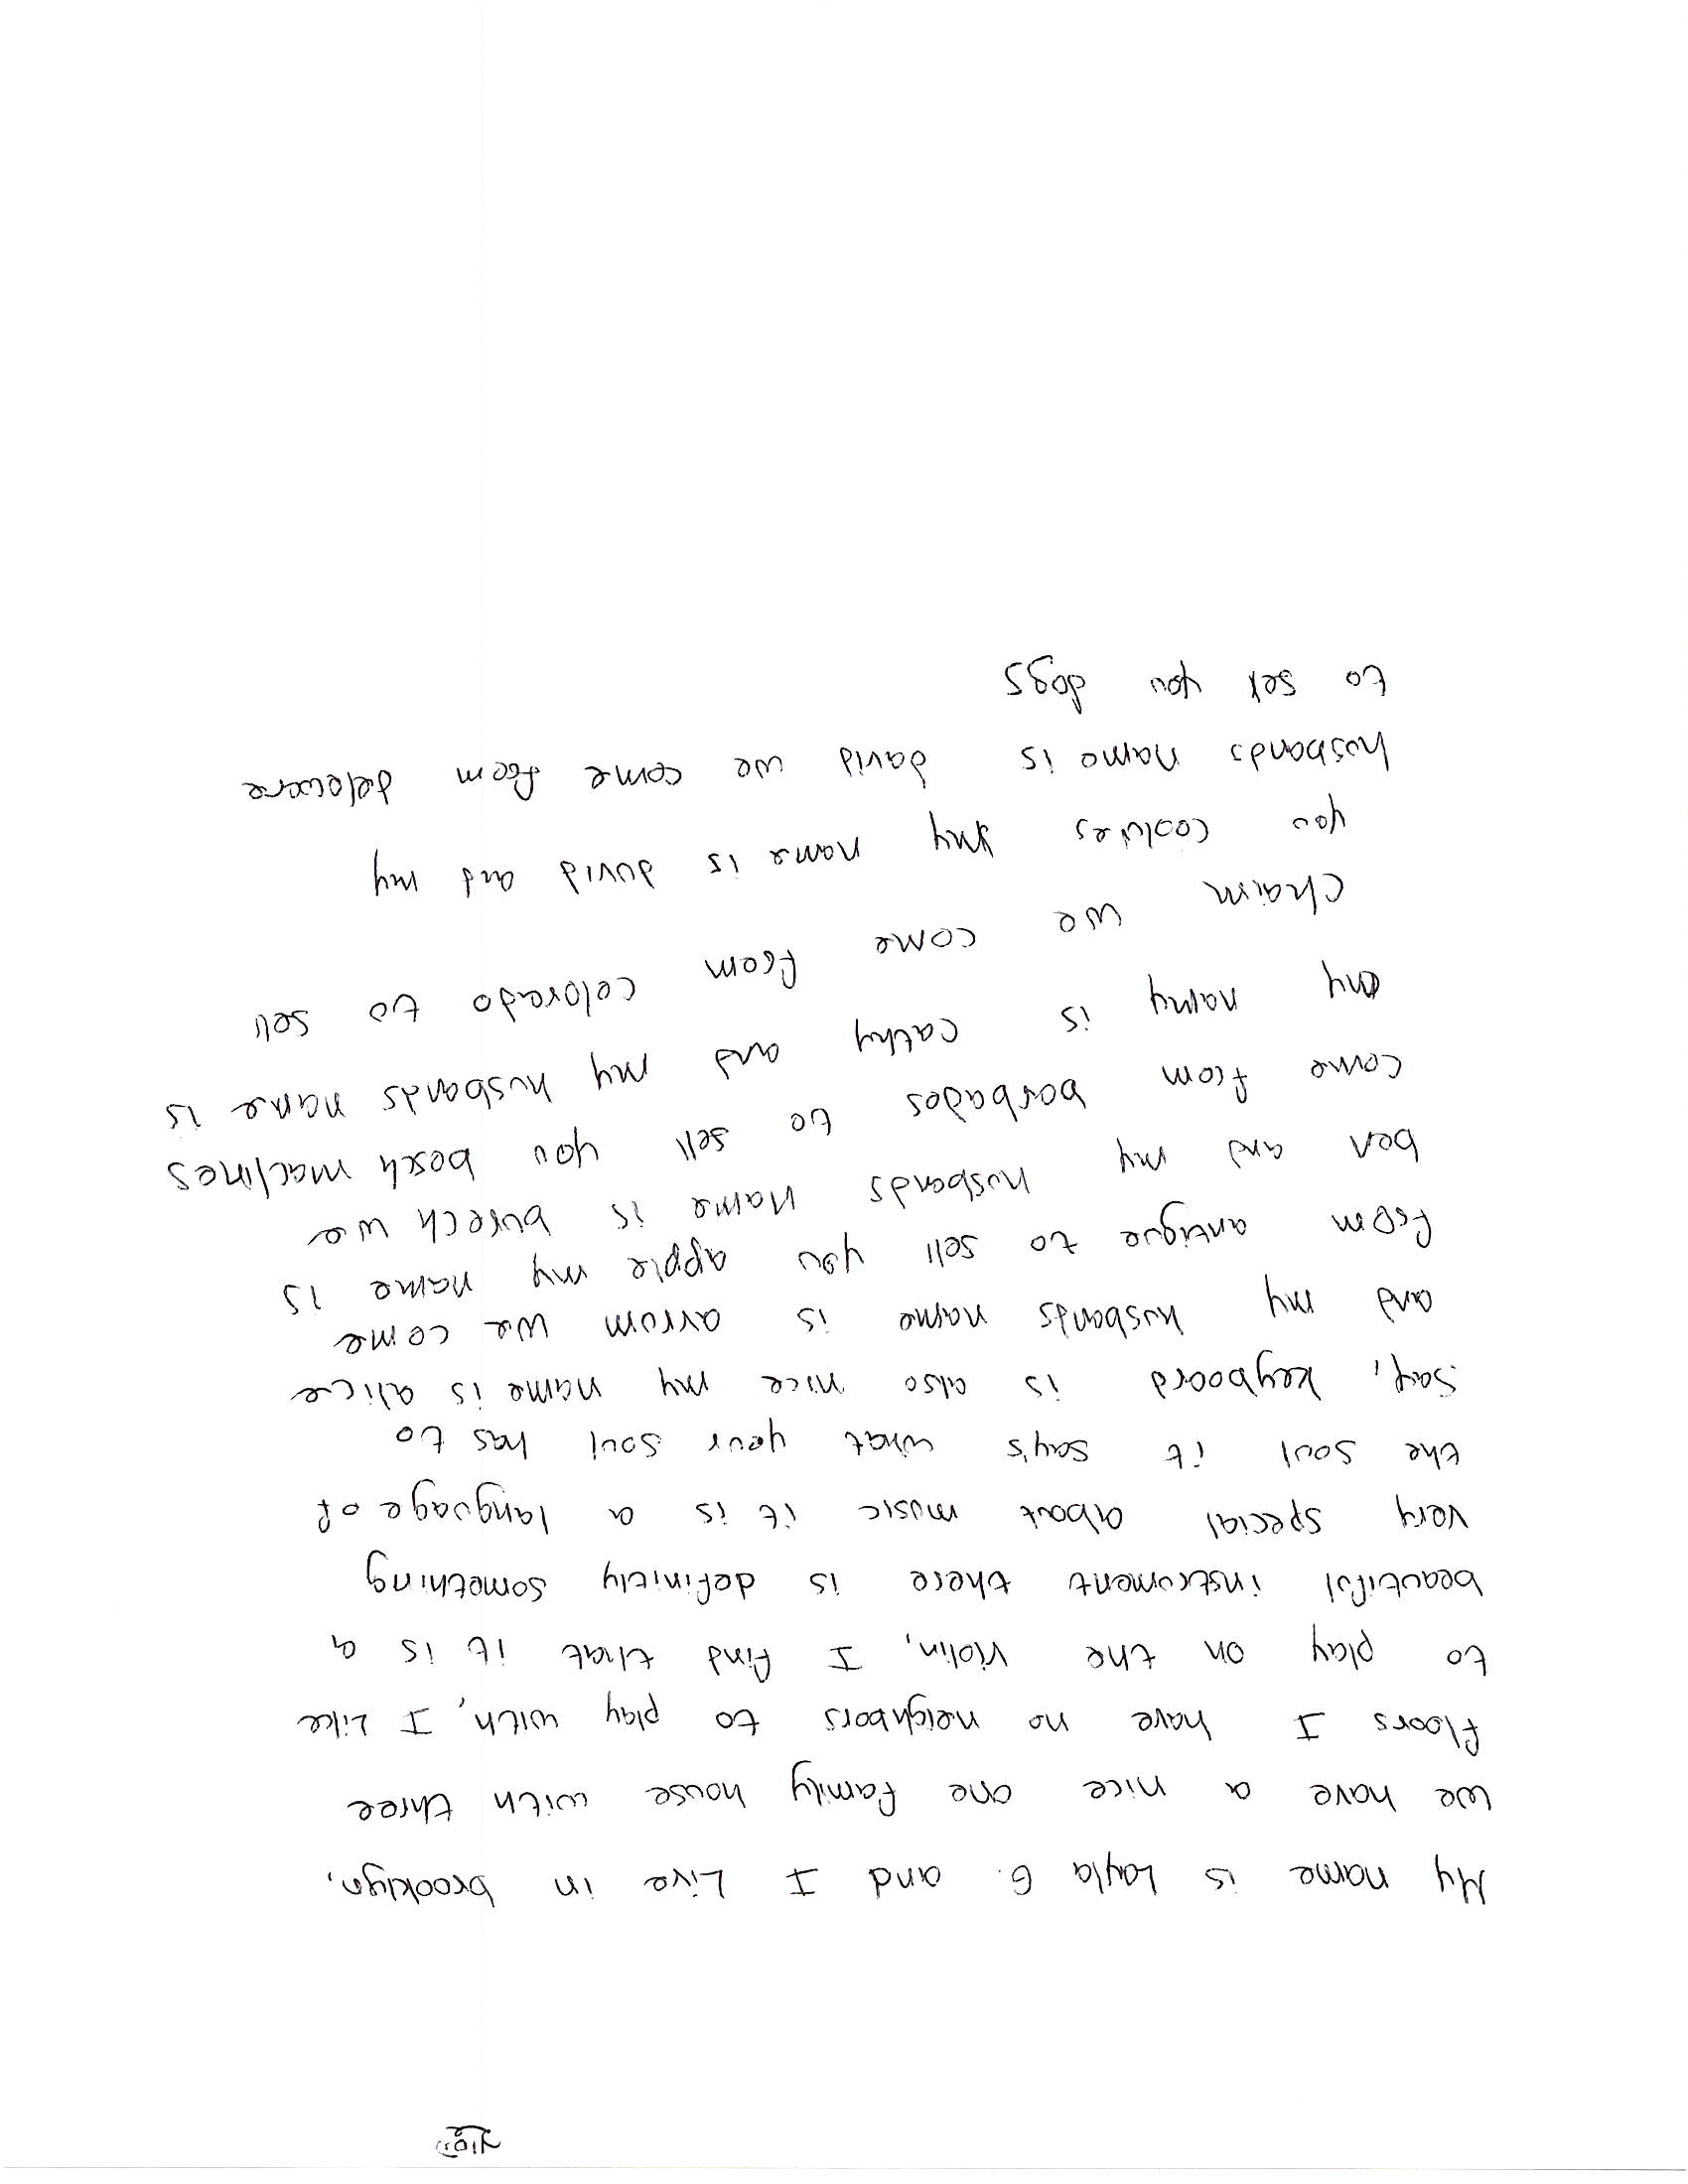 My name is Layla G. and I Live in brooklyn,
we have a nice one family house with three
floors I have no neighbors to play with, I Like
to play on the violin, I find that it is a
beautiful instrument there is definitly something
very special about music it is a language of
the soul it say's what your soul has to
say, keyboard is also nice my name is alice
and my husbands name is avrom we come
from antique to sell you apple my name is
ben and my husbands name is burech we
come from barbados to sell you bosch maclines
my namy is cathy and my husbands name is
chaim we come from colorado to sell
you cookies my name is duvid and my
husbands name is david we come from delewere
to sell you dogs